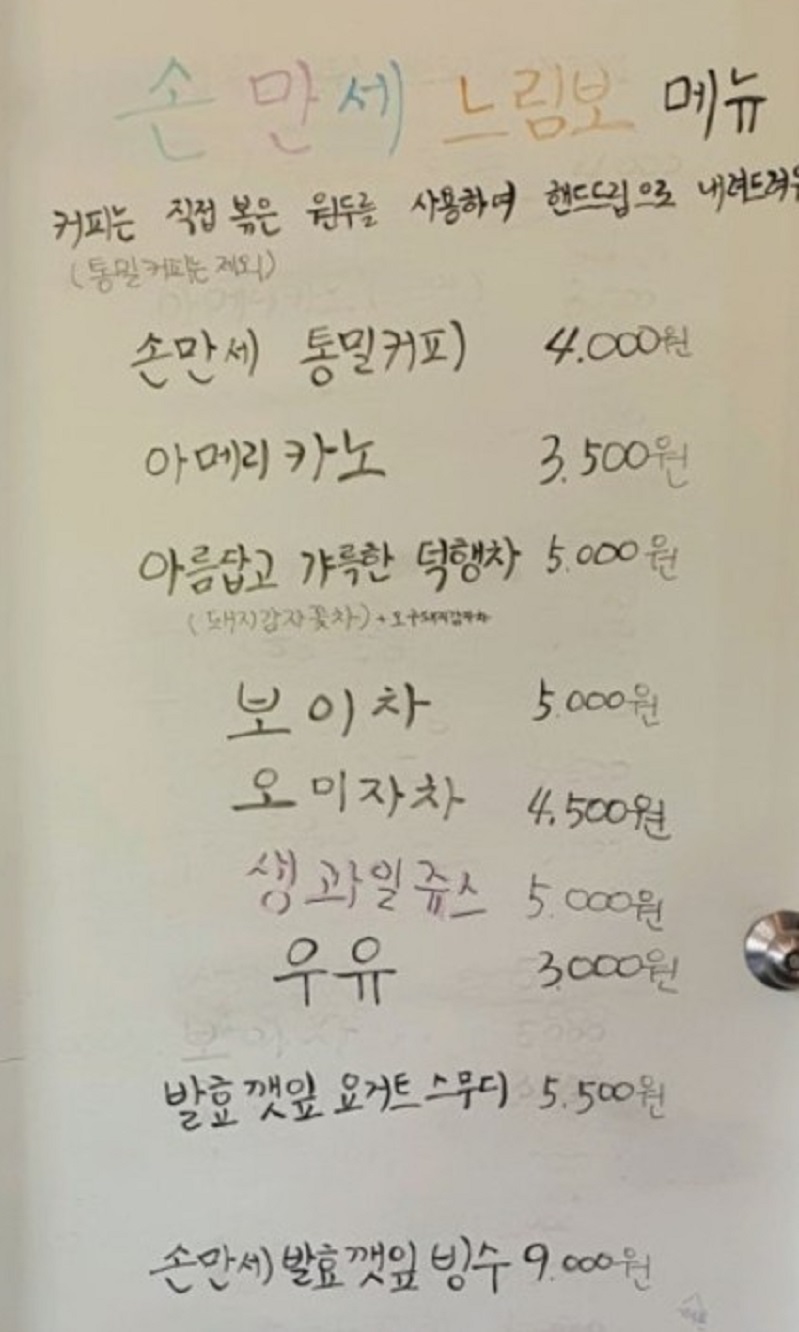 손만세 느림보 메뉴
커피는 직접 볶은 원두를 사용하며 핸드드립으로 내려드려요
(통밀커피는 제외)
손만세 통밀커피 4.000원
아메리카노 3.500원
아름답고 갸륵한 덕행차 5.000원
(돼지감자꽃차) + 오구돼지감자차
보이차 5.000원
오미자차 4.500원
생과일쥬스 5.000원
우유 3.000원
발효깻잎 요거트 스무디 5.500원
손만세 발효깻잎 빙수 9.000원